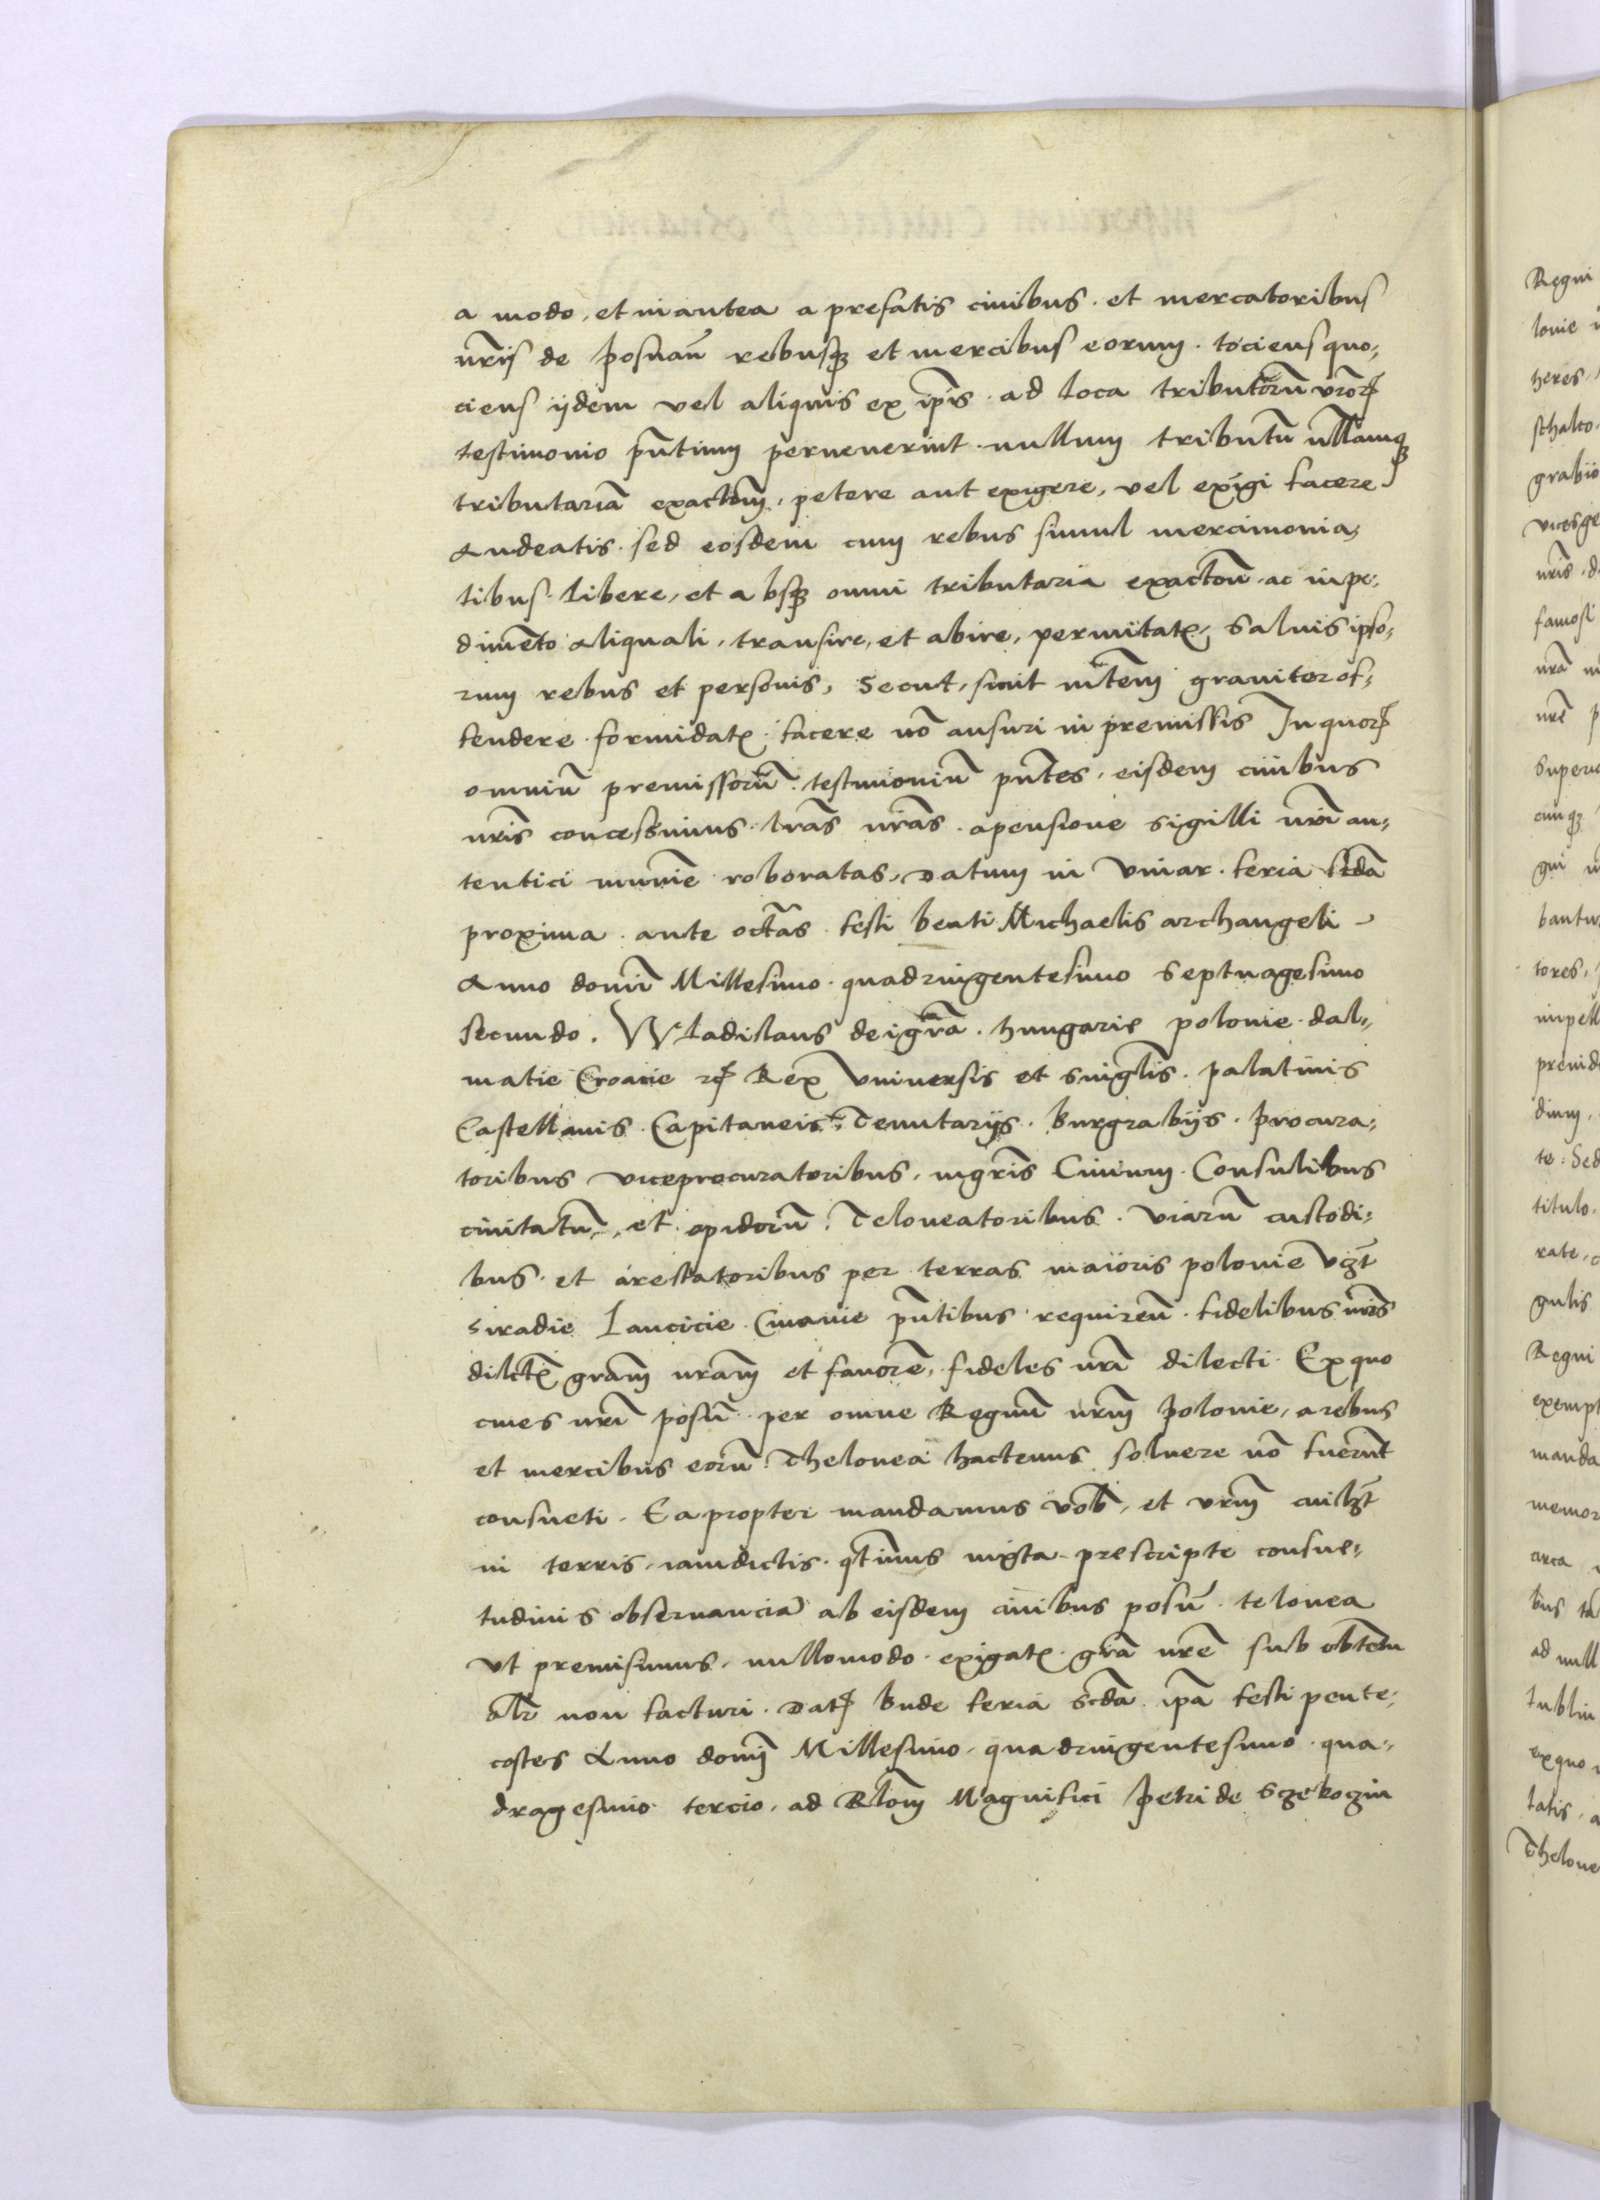 a modo, et inantea a prefatis ciuibus. et mercatoribus
nr̃is de Posnan̄ rebusqȝ et mercibus eorum. tociens quo-
ciens ijdem vel aliquis ex ip̄is. ad loca tributorū vr̃oꝝ
testimonio pn̄tium peruenerint. nullum tributū nllamqȝ
tributariā exactōm, petere aut exigere, vel exigi facere
Audeatis. sed eosdem cum rebus simul mercimonia-
libus. libere, et absqȝ omni tributaria exactōn. ac inpe-
dimēto aliquali, transire, et abire, permitatꝭ, Saluis ipso-
rum rebus et personis, Secut, sicut
fendere. formidatꝭ. facere nō ausuri in premissis In quoꝝ
omniū premissorū. testimoniū pn̄tes, eisdem ciuibus
nr̃is concessimus. lr̄as nr̃as. apensione sigilli nr̃i au-
tentici munīe roboratas, Datum in Vniar. feria scd̄a
proxima. ante octāas. festi beati Michaelis archangeli
Anno domī Millesimo. quadringentesimo Septuagesimo
secundo. Wladislaus dei gr̄a. hungarie polonie. dal-
matie Croatie ꝛꝭ Rex Vniuersis et singl̄is. palatinis
Castellanis. Capitaneis. Tenutarijs. Burgrabijs. procura-
toribus viceprocuratoribus, mgr̄is Ciuium. Consulibus
ciuitatū, et opidorū. Teloneatoribus. viarū custodi-
bus. et arestatoribus per terras maioris polonie vȝt
Siradie Lancicie. Cuiauie pn̄tibus requirēn. fidelibus nr̃is
dilctꝭ gr̄am nr̃am et fauorē, fideles nr̃i dilecti. Ex quo
ciues nr̃i posn̄. per omne Regnū nr̃m Polonie, a rebus
et mercibus eorū. Thelonea hactenus soluere nō fuerūt
consueti. Ea propter mandamus vob̄, et vr̃m cuilȝt
in terris, iamdictis. qt̄inus iuxta prescripte consue-
tudinis obseruanciā ab eisdem ciuibus posn̄. telonea
vt premisimus, nullomodo. exigatꝭ. gr̄a nr̃e sub obtētu
Alr̄ non facturi. Datꝭ Bude feria Scd̄a ip̄a festi pente-
costes Anno domī Millesimo. quadringentesimo. qua-
dragesimo tercio, ad Rlōm Magnifici Petri de Sczekoczin
Regni
lonie
heres
schalco
grabiio
vicesge
nr̃is. d
famosi
nr̃a
nr̃e p
Superi
cunqȝ
gni
bantur
tores,
impell
prenid
dium,
te: Sed
titulo.
rate,
gulis
Regni
exempt
manda
memor
arca
bus ta
ad null
lublin
exquo
latis, a
Thelone